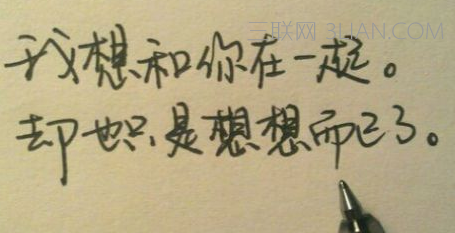 三联网 3LIAN.COM
我想和你在一起。
却也只是想想而已了。